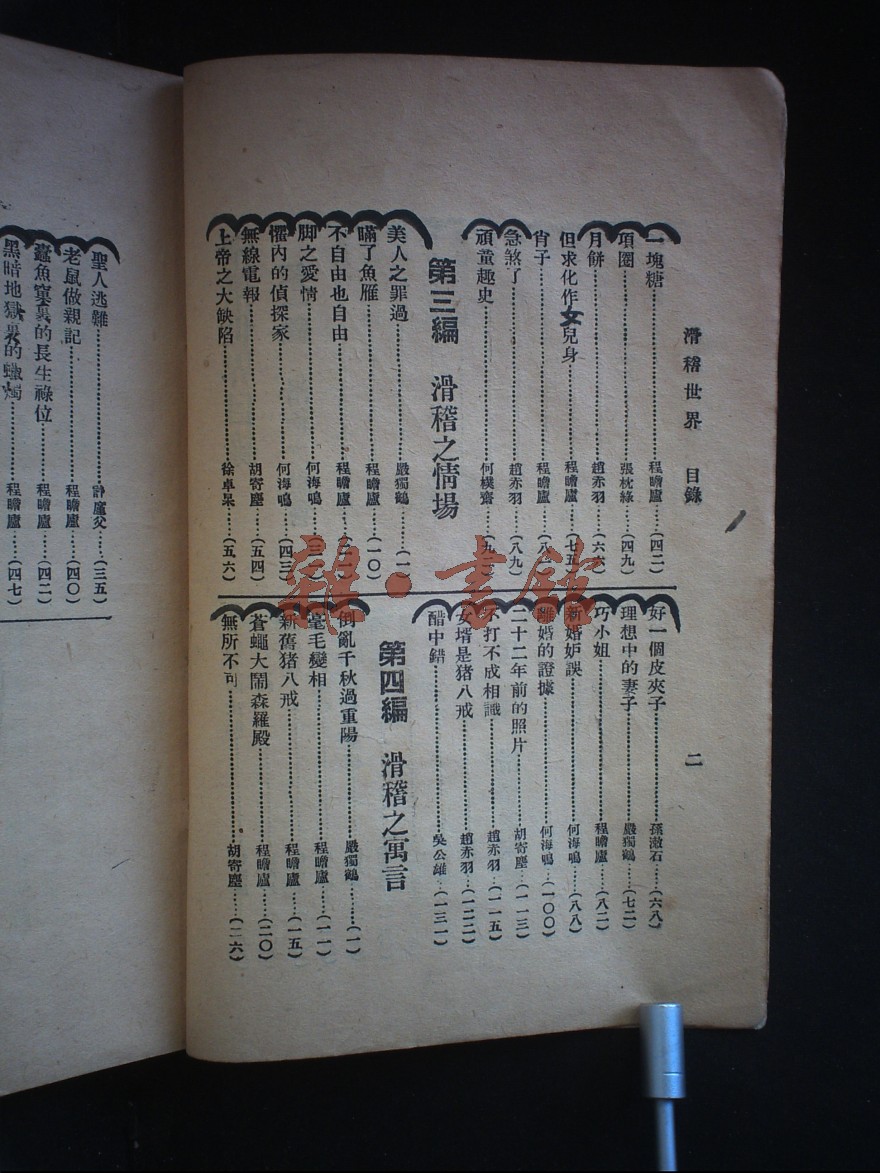 滑稽世界 目錄 二
一塊糖……程瞻廬……(四二)
項圈……張枕綠……(四九)
月餅……趙赤羽……(六
但求化作女兒身……程瞻廬……(七五)
肖子……程瞻廬……(八
急煞了……趙赤羽……(八九)
頑童趣史……何樸齋……(九
第三編 滑稽之情場
美人之罪過……嚴獨鶴……(一)
瞞了魚雁……程瞻廬……(一〇)
不自由也自由……程瞻廬……(二一)
脚之愛情……何海鳴……(三
懼內的偵探家……何海鳴……(四三)
無線電報……胡寄塵……(五四)
上帝之大缺陷……徐卓呆……(五六)
好一個皮夾子……孫漱石……(六八)
理想中的妻子……嚴獨鶴……(七二)
巧小姐……程瞻廬……(八二)
新婚妬誤……何海鳴……(八八)
離婚的證據……何海鳴……(一〇〇)
二十二年前的照片……胡寄塵……(一一三)
不打不成相識……趙赤羽……(一一五)
女壻是猪八戒……趙赤羽……(一二二)
醋中錯……吳公雄……(一三一)
第四編 滑稽之寓言
倒亂千秋過重陽……嚴獨鶴……(一)
毫毛變相……程瞻廬……(一一)
新舊猪八戒……程瞻廬……(一五)
蒼蠅大鬧森羅殿……程瞻廬……(二〇)
無所不可……胡寄塵……(二六)
聖人逃難……許廑父……(三五)
老鼠做親記……程瞻廬……(四〇)
蠹魚窠裏的長生祿位……程瞻廬……(四二)
黑暗地獄裏的蠟燭……程瞻廬……(四七)
雜·書館